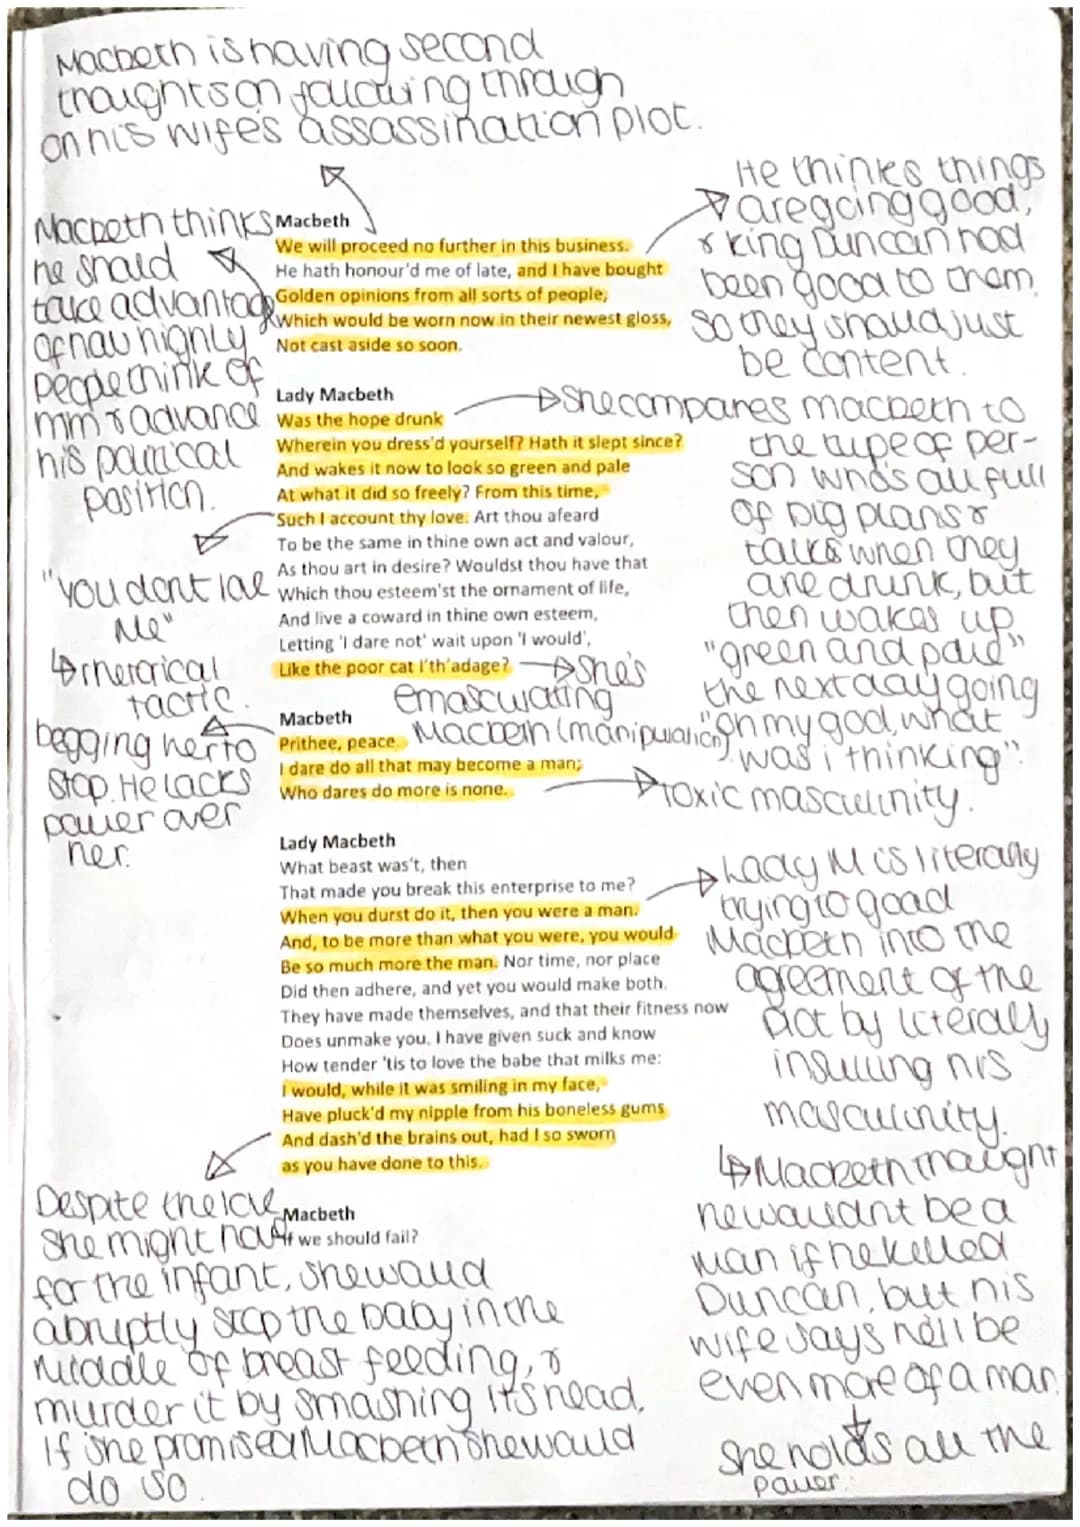 Macbeth is having second
thoughts on following through
on his wife's assassination plot.
He thinks things
are going good,
& king Duncan had
been good to them.
So they should just
be content.
Macbeth thinks
he should
take advantage
of how highly
people think of
him & advance
his political
position.
Macbeth
We will proceed no further in this business.
He hath honour'd me of late, and I have bought
Golden opinions from all sorts of people,
Which would be worn now in their newest gloss,
Not cast aside so soon.
Lady Macbeth
Was the hope drunk
Wherein you dress'd yourself? Hath it slept since?
And wakes it now to look so green and pale
At what it did so freely? From this time,
Such I account thy love. Art thou afeard
To be the same in thine own act and valour,
As thou art in desire? Wouldst thou have that
Which thou esteem'st the ornament of life,
And live a coward in thine own esteem,
Letting 'I dare not' wait upon 'I would',
Like the poor cat I'th'adage?
She compares macbeth to
the type of per-
son who's all full
of big plans &
talks when they
are drunk, but
then wakes up
"green and pale"
the next day going
"oh my god, what
was i thinking".
"you dont love
Me"
↳rhetorical
tactic.
She's
emasculating
Macbeth (manipulation)
Macbeth
Prithee, peace.
I dare do all that may become a man;
Who dares do more is none.
begging her to
stop. He lacks
power over
her.
toxic masculinity.
Lady Macbeth
What beast was't, then
That made you break this enterprise to me?
When you durst do it, then you were a man.
And, to be more than what you were, you would
Be so much more the man. Nor time, nor place
Did then adhere, and yet you would make both.
They have made themselves, and that their fitness now
Does unmake you. I have given suck and know
How tender 'tis to love the babe that milks me:
I would, while it was smiling in my face,
Have pluck'd my nipple from his boneless gums
And dash'd the brains out, had I so sworn
as you have done to this.
Lady M is literally
trying to goad
Macbeth into the
agreement of the
plot by literally
insulting his
masculinity.
↳Macbeth thought
he wouldnt be a
man if he killed
Duncan, but his
wife says he'll be
even more of a man.
She holds all the
power.
Macbeth
If we should fail?
Despite the love
she might have
for the infant, she would
abruptly stop the baby in the
middle of breast feeding, &
murder it by smashing its head,
If she promised Macbeth she would
do so.